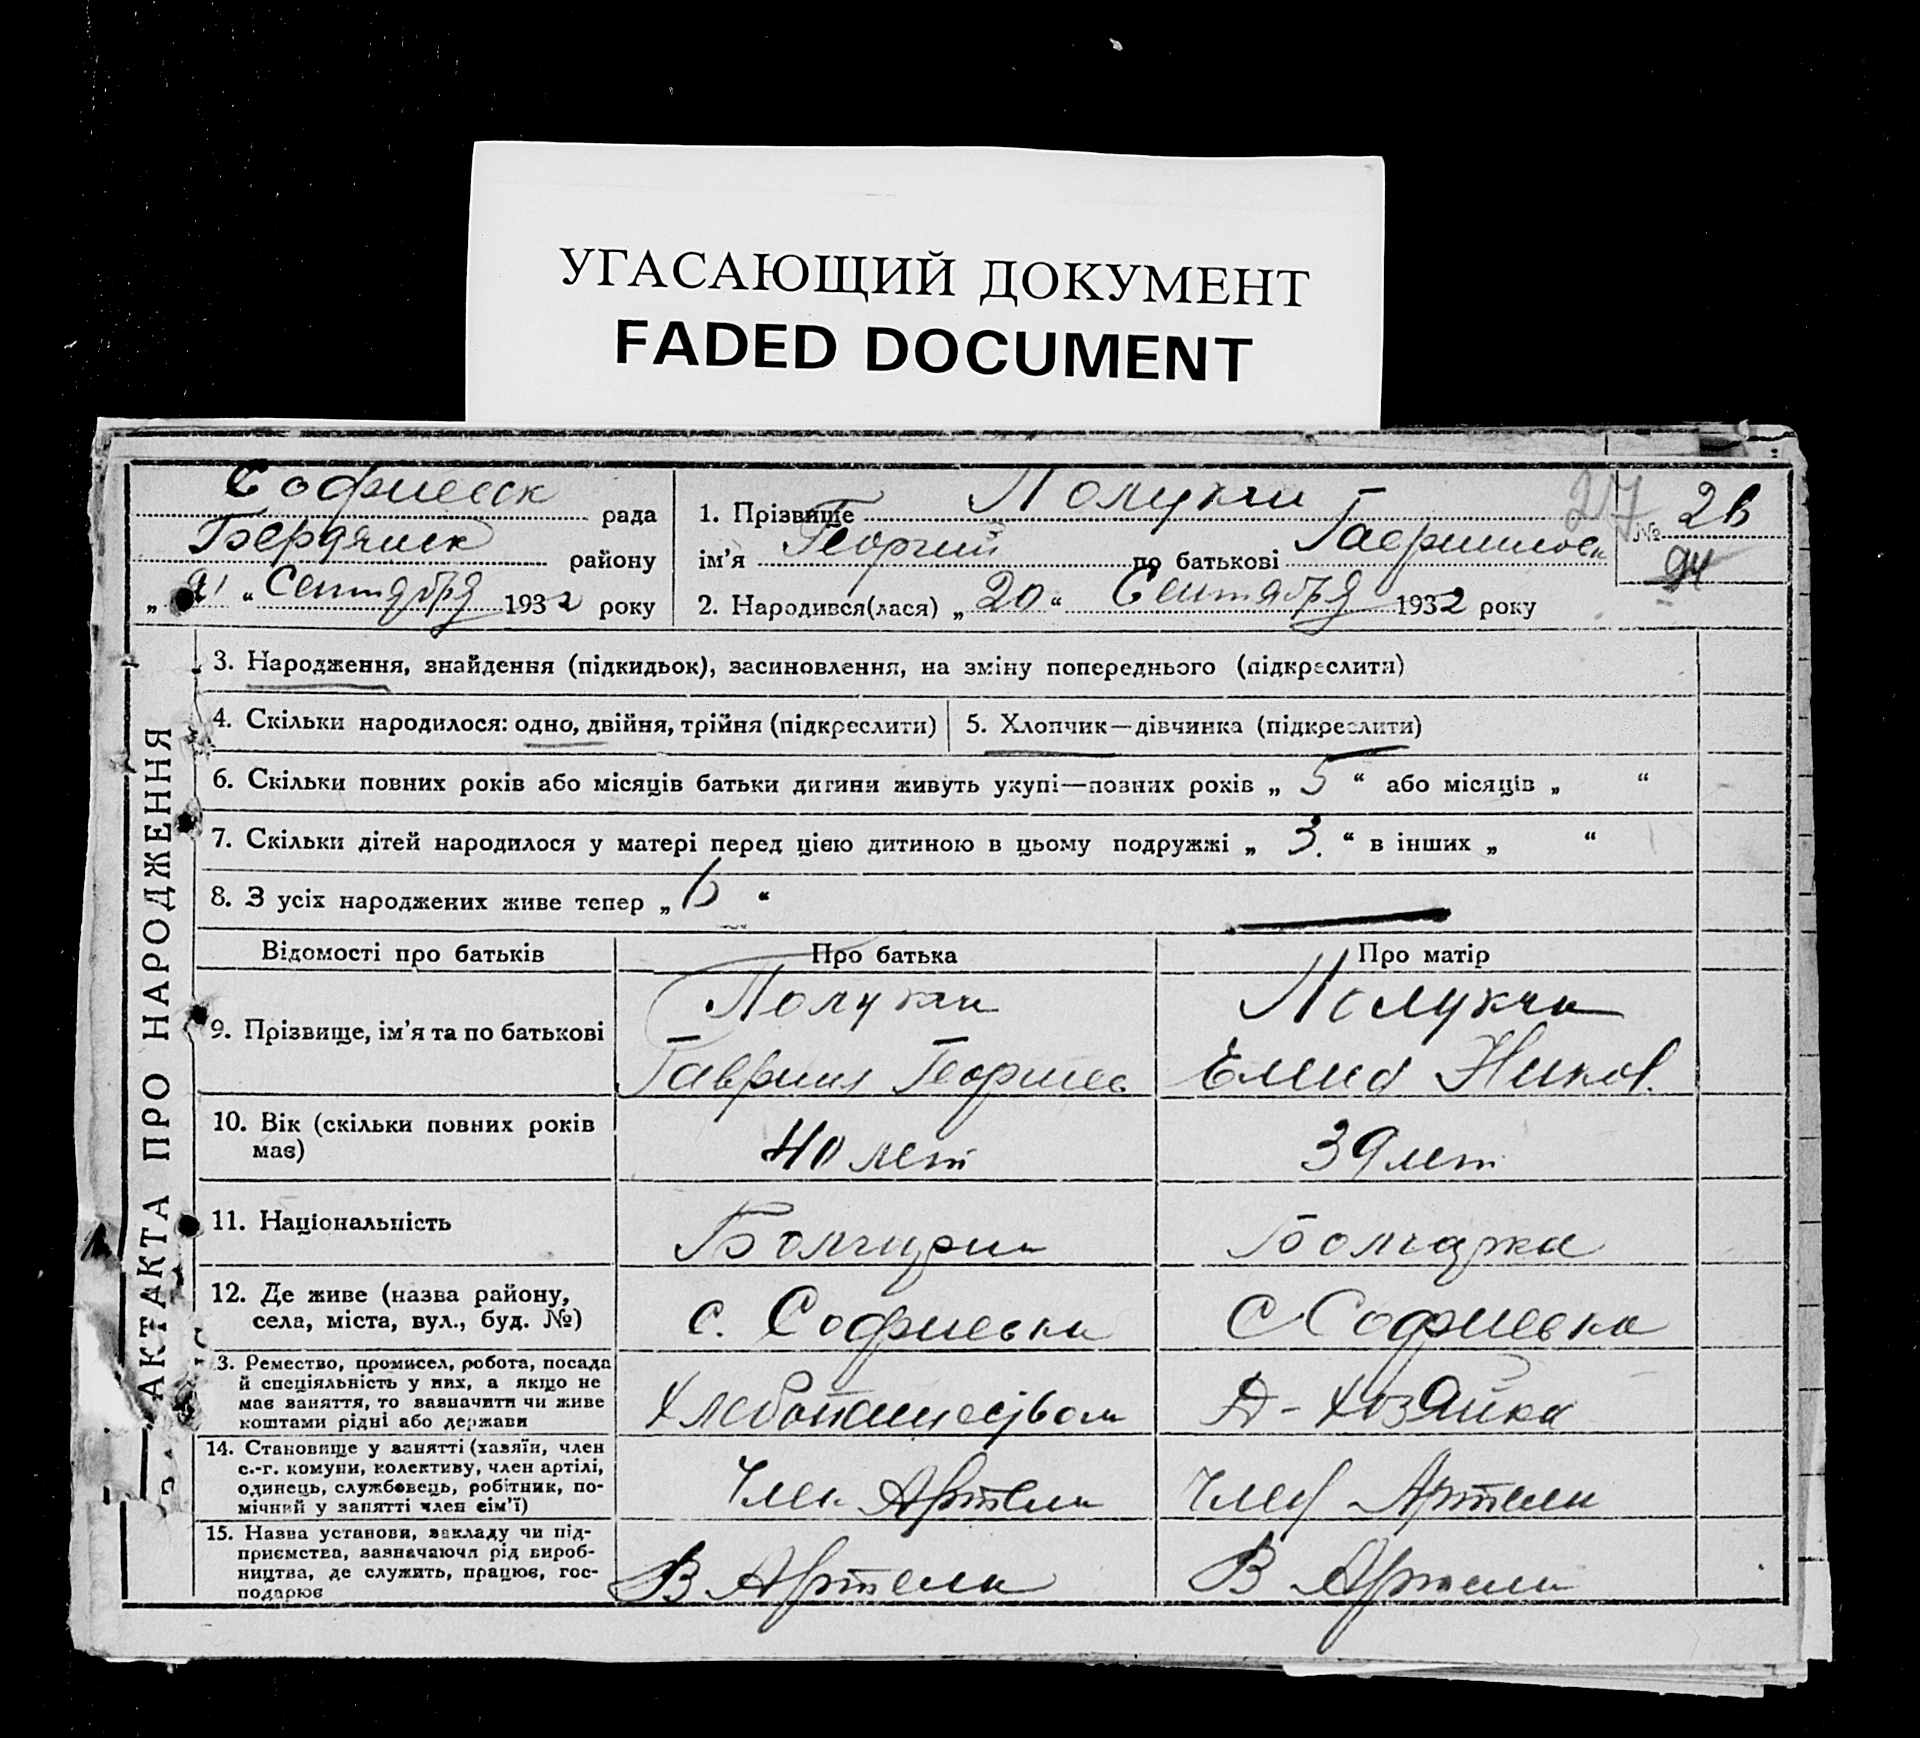 УГАСАЮЩИЙ ДОКУМЕНТ
FADED DOCUMENT
Софиевск рада
Бердянск району
„ 21 “ Сентября 1932 року
1. Прізвище Полукчи
ім’я Георгий по батькові Гавриилов
2. Народився(лася) „ 20 “ Сентября 1932 року
27
№ 26
94
АКТ ПРО НАРОДЖЕННЯ
3. Народження, знайдення (підкидьок), засиновлення, на зміну попереднього (підкреслити)
4. Скільки народилося: одно, двійня, трійня (підкреслити)
5. Хлопчик—дівчинка (підкреслити)
6. Скільки повних років або місяців батьки дитини живуть укупі—повних років „ 5 “ або місяців „ “
7. Скільки дітей народилося у матері перед цією дитиною в цьому подружжі „ 3. “ в інших „ “
8. З усіх народжених живе тепер „ “
Відомості про батьків
Про батька
Про матір
9. Прізвище, ім’я та по батькові
Полукчи
Гавриил Георгиев
Полукчи
Елена Никол.
10. Вік (скільки повних років
має)
40 лет
39 лет
11. Національність
Болгарин
Болгарка
12. Де живе (назва району,
села, міста, вул., буд. №)
с. Софиевка
С Софиевка
3. Ремество, промисел, робота, посада
й спеціяльність у них, а якщо не
має заняття, то зазначити чи живе
коштами рідні або держави
Хлебопашеством
Д-Хозяйка
14. Становище у занятті (хазяїн, член
с.-г. комуни, колективу, член артілі,
одинець, службовець, робітник, по-
мічний у занятті член сім’ї)
Член Артели
Член Артели
15. Назва установи, закладу чи під-
приємства, зазначаючи рід вироб-
ництва, де служить, працює, гос-
подарює
В Артели
В Артели